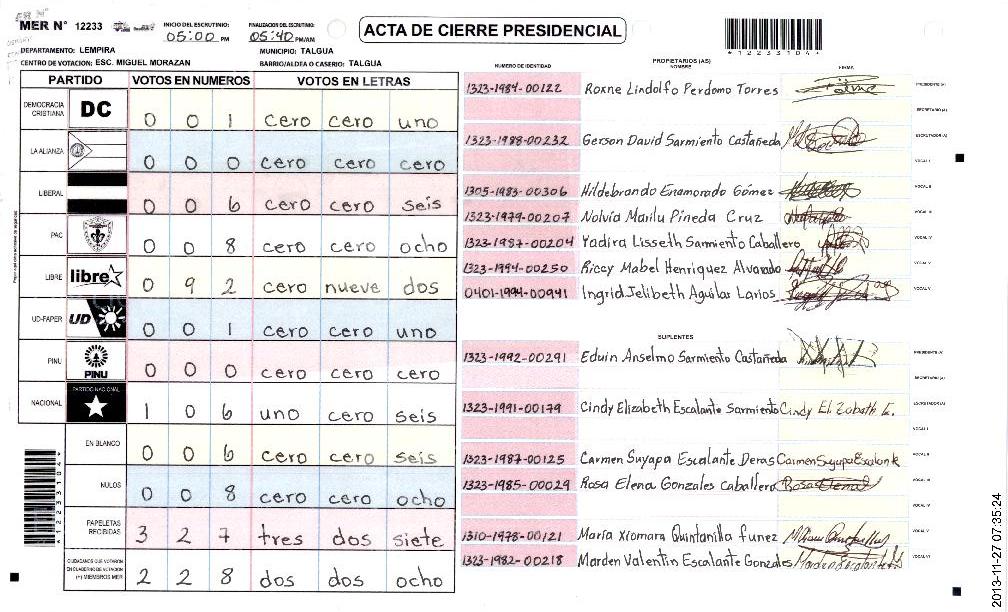 MER N° 12233
INICIO DEL ESCRUTINIO: 05:00 PM
FINALIZACION DEL ESCRUTINIO: 05:40 PM/AM
ACTA DE CIERRE PRESIDENCIAL
122331041
DEPARTAMENTO: LEMPIRA
MUNICIPIO: TALGUA
CENTRO DE VOTACION: ESC. MIGUEL MORAZAN
BARRIO/ALDEA O CASERIO: TALGUA
PARTIDO VOTOS EN NUMEROS VOTOS EN LETRAS
DEMOCRACIA CRISTIANA DC 0 0 1 cero cero uno
LA ALIANZA 0 0 0 cero cero cero
LIBERAL 0 0 6 cero cero seis
PAC 0 0 8 cero cero ocho
LIBRE libre 0 9 2 cero nueve dos
UD-FAPER UD 0 0 1 cero cero uno
PINU PINU 0 0 0 cero cero cero
NACIONAL PARTIDO NACIONAL 1 0 6 uno cero seis
EN BLANCO 0 0 6 cero cero seis
NULOS 0 0 8 cero cero ocho
PAPELETAS RECIBIDAS 3 2 7 tres dos siete
CIUDADANOS QUE VOTARON EN CUADERNO DE VOTACION (+) MIEMBROS MER 2 2 8 dos dos ocho
NUMERO DE IDENTIDAD
PROPIETARIOS (AS)
NOMBRE
FIRMA
1323-1984-00122 Roxne Lindolfo Perdomo Torres PRESIDENTE (A)
SECRETARIO (A)
1323-1988-00232 Gerson David Sarmiento Castañeda ESCRUTADOR (A)
VOCAL I
1305-1983-00306 Hildebrando Enamorado Gómez VOCAL II
1323-1979-00207 Nolvia Marilu Pineda Cruz VOCAL III
1323-1987-00204 Yadira Lisseth Sarmiento Caballero VOCAL IV
1323-1994-00250 Riccy Mabel Henriquez Alvarado VOCAL V
0401-1994-00941 Ingrid Jelibeth Aguilar Larios
SUPLENTES
1323-1992-00291 Eduin Anselmo Sarmiento Castañeda PRESIDENTE (A)
SECRETARIO (A)
1323-1991-00179 Cindy Elizabeth Escalante Sarmiento Cindy Elizabeth E. ESCRUTADOR (A)
VOCAL I
1323-1987-00125 Carmen Suyapa Escalante Deras Carmen Suyapa Escalante VOCAL II
1323-1985-00029 Rosa Elena Gonzales Caballero Rosa Elena VOCAL III
VOCAL IV
1310-1978-00121 María Xiomara Quintanilla funez VOCAL V
1323-1982-00218 Marden Valentin Escalante Gonzales VOCAL VI
2013-11-27 07:35:24